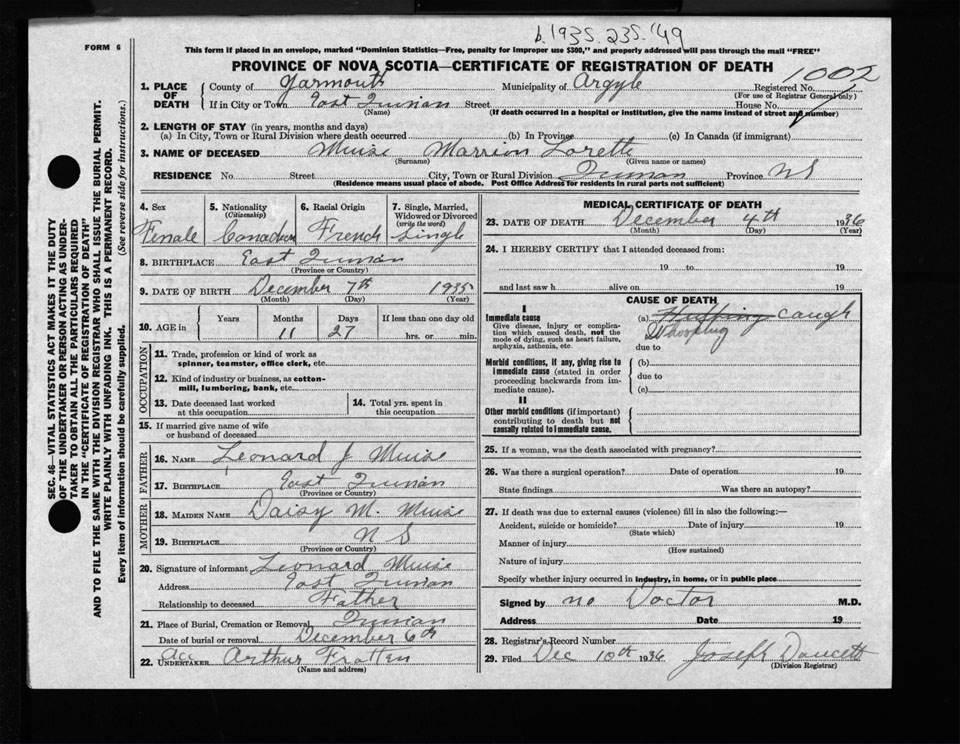 b. 1935. 235. '49
FORM 6
This form if placed in an envelope, marked "Dominion Statistics—Free, penalty for improper use $300," and properly addressed will pass through the mail "FREE"
PROVINCE OF NOVA SCOTIA—CERTIFICATE OF REGISTRATION OF DEATH
1002
1. PLACE OF DEATH
County of Yarmouth Municipality of Argyle Registered No.
(For use of Registrar General only)
If in City or Town East Street House No.
(Name) (If death occurred in a hospital or institution, give the name instead of street and number)
2. LENGTH OF STAY (in years, months and days)
(a) In City, Town or Rural Division where death occurred (b) In Province (c) In Canada (if immigrant)
3. NAME OF DECEASED Muise Marrion Lorette
(Surname) (Given name or names)
RESIDENCE No Street City, Town or Rural Division Province NS
(Residence means usual place of abode. Post Office Address for residents in rural parts not sufficient)
4. Sex
Female
5. Nationality
(Citizenship)
Canadian
6. Racial Origin
French
7. Single, Married, Widowed or Divorced
(write the word)
Single
8. BIRTHPLACE East
(Province or Country)
9. DATE OF BIRTH December 7th 1935
(Month) (Day) (Year)
10. AGE in
Years Months Days If less than one day old
11 27 hrs. or min.
OCCUPATION
11. Trade, profession or kind of work as spinner, teamster, office clerk, etc.
12. Kind of industry or business, as cotton-mill, lumbering, bank, etc.
13. Date deceased last worked at this occupation
14. Total yrs. spent in this occupation
15. If married give name of wife or husband of deceased
FATHER
16. NAME Leonard J. Muise
17. BIRTHPLACE East
(Province or Country)
MOTHER
18. MAIDEN NAME Daisy M. Muise
19. BIRTHPLACE N S
(Province or Country)
20. Signature of informant Leonard Muise
Address East
Relationship to deceased Father
21. Place of Burial, Cremation or Removal
Date of burial or removal December 6th
22. UNDERTAKER Arthur
(Name and address)
MEDICAL CERTIFICATE OF DEATH
23. DATE OF DEATH December 4th 1936
(Month) (Day) (Year)
24. I HEREBY CERTIFY that I attended deceased from:
19 to 19
and last saw h alive on 19
CAUSE OF DEATH
I
Immediate cause
Give disease, injury or complication which caused death, not the mode of dying, such as heart failure, asphyxia, asthenia, etc.
(a) caugh
Whooping
due to
Morbid conditions, if any, giving rise to immediate cause (stated in order proceeding backwards from immediate cause).
(b)
due to
(c)
II
Other morbid conditions (if important) contributing to death but not causally related to immediate cause.
25. If a woman, was the death associated with pregnancy?
26. Was there a surgical operation? Date of operation 19
State findings Was there an autopsy?
27. If death was due to external causes (violence) fill in also the following:—
Accident, suicide or homicide? Date of injury 19
(State which)
Manner of injury
(How sustained)
Nature of injury
Specify whether injury occurred in industry, in home, or in public place
Signed by no Doctor M.D.
Address Date 19
28. Registrar's Record Number
29. Filed Dec 10th 1936 Joseph Doucett
(Division Registrar)
SEC. 46—VITAL STATISTICS ACT MAKES IT THE DUTY
OF THE UNDERTAKER OR PERSON ACTING AS UNDERTAKER TO OBTAIN ALL THE PARTICULARS REQUIRED
IN THE "CERTIFICATE OF REGISTRATION OF DEATH"
AND TO FILE THE SAME WITH THE DIVISION REGISTRAR WHO SHALL ISSUE THE BURIAL PERMIT.
WRITE PLAINLY WITH UNFADING INK. THIS IS A PERMANENT RECORD.
Every item of information should be carefully supplied. (See reverse side for instructions.)